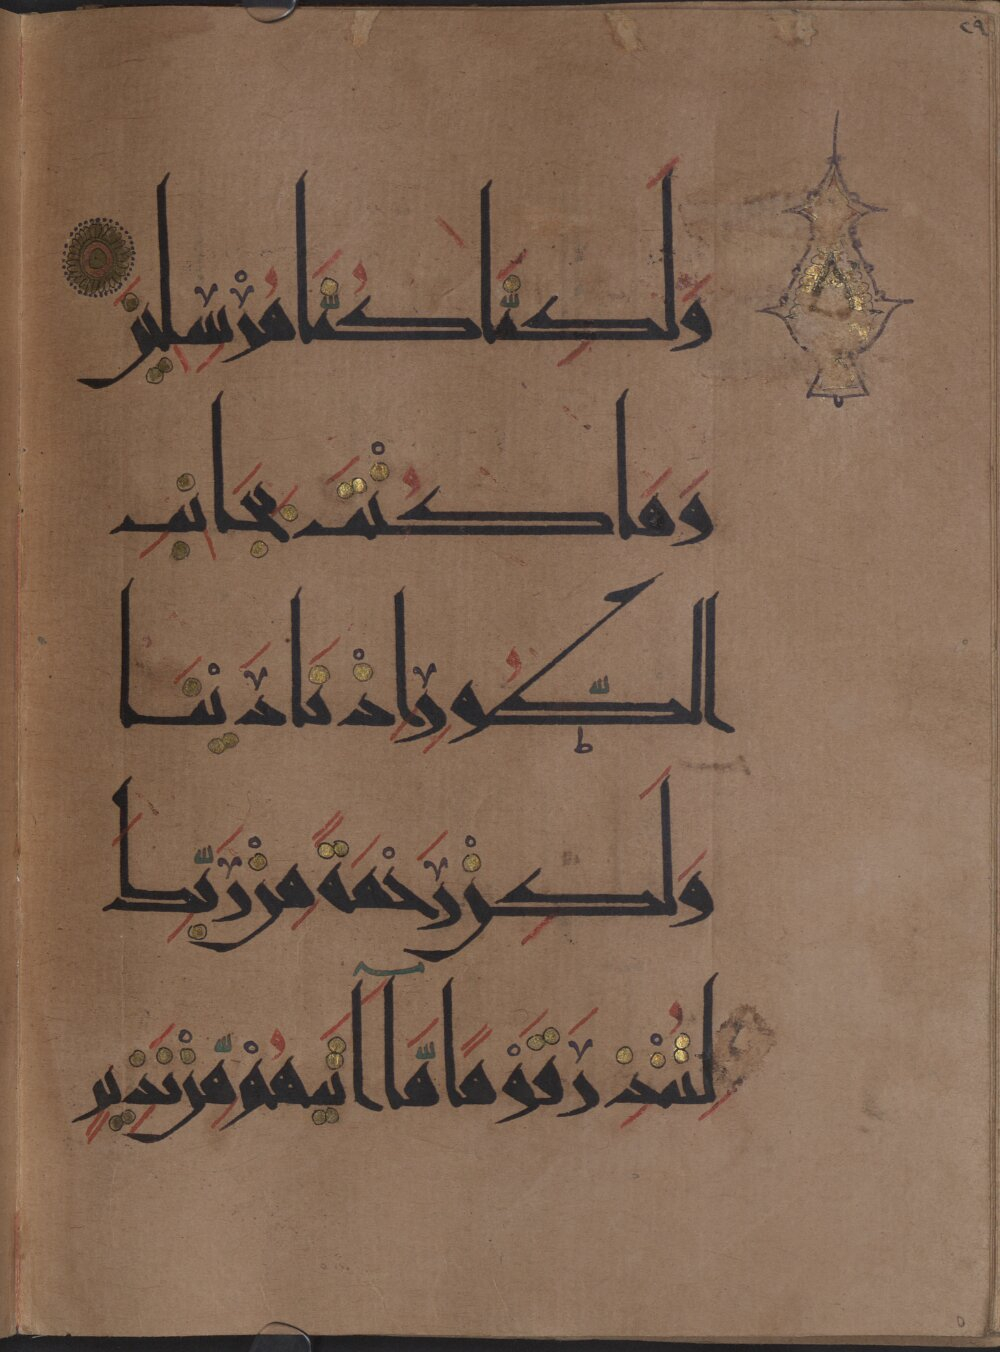 ٢٩
وَلَكِنَّا كُنَّا مُرْسِلِينَ
وَمَا كُنْتَ بِجَانِبِ
الطُّورِ اِذْ نَادَيْنَا
وَلَكِنْ رَحْمَةً مِنْ رَبِّكَ
لِتُنْذِرَ قَوْمًا مَّا اَتَيهُمْ مِّنْ نَذِيرٍ